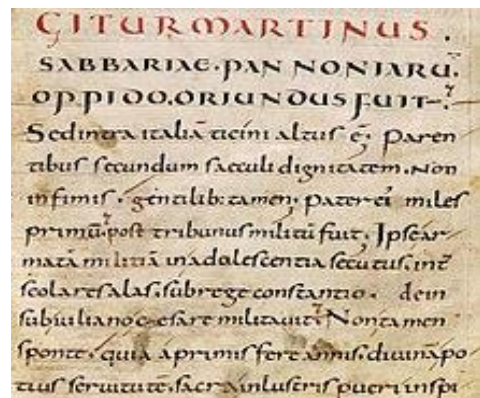 GITUR MARTINUS.
SABBARIAE·PANNONIARŪ.
OPPIDO.ORIUNDUS FUIT.
Sed intra italiā ticini altus ē. Paren
tibus secundum saeculi dignitatem. Non
infimis. gentilib; tamen, pater ei' miles
primū. post tribunus militū fuit. Ipse ar
matā militiā in adolescentia secutus. int̄
scolares alas. sub rege constantio. dein
sub iuliano cesare militavit. Non tamen
sponte. quia a primis fere annis. divinā po
tius servitutē. sacra inlustris pueri inspi